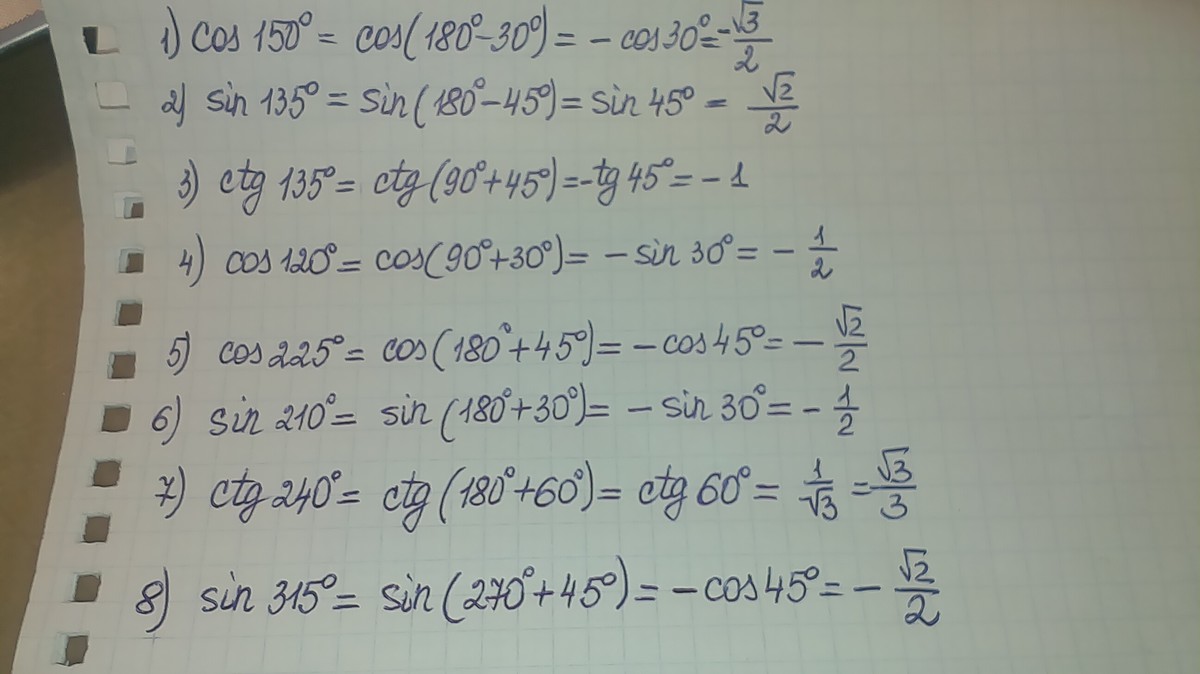 1) cos 150° = cos(180°-30°) = - cos30° = -√3/2
2) sin 135° = sin(180°-45°) = sin 45° = √2/2
3) ctg 135° = ctg(90°+45°) = -tg 45° = -1
4) cos 120° = cos(90°+30°) = - sin 30° = - 1/2
5) cos 225° = cos(180°+45°) = - cos 45° = - √2/2
6) sin 210° = sin(180°+30°) = - sin 30° = - 1/2
7) ctg 240° = ctg(180°+60°) = ctg 60° = 1/√3 = √3/3
8) sin 315° = sin(270°+45°) = - cos 45° = - √2/2